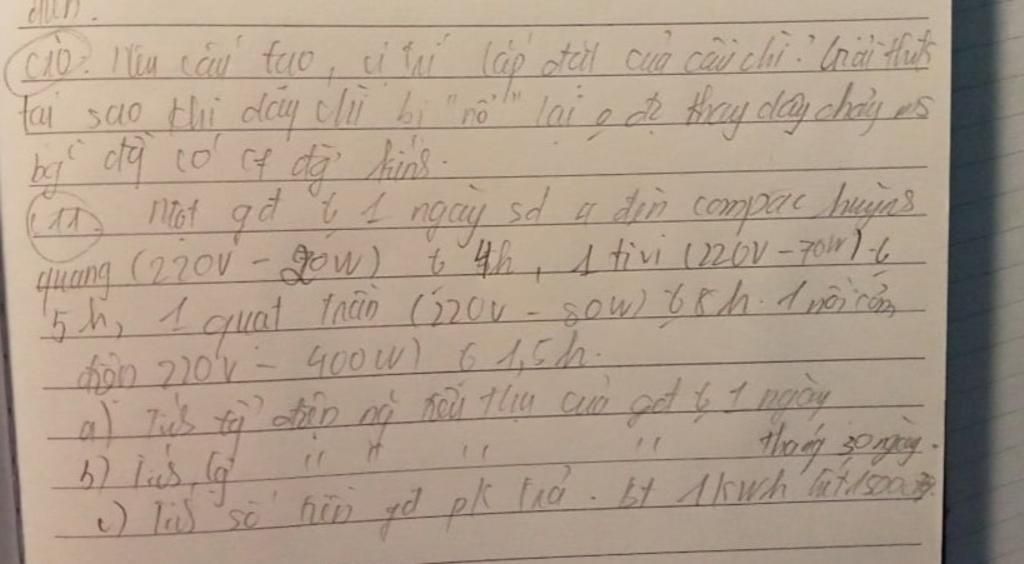 C10. Nêu cấu tạo, vị trí lắp đặt của cầu chì? Giải thích
tại sao khi dây chì bị "nổ" lại o đc thay dây chảy ms
bg dây có cg đg kính.
C11. Một gđ 1 ngày sd 4 đèn compac huỳnh
quang (220V - 20W) 4h, 1 tivi (220V - 70W)
5h, 1 quạt trần (220V - 80W) 8h. 1 nồi cơm
điện 220V - 400W) 1,5h.
a) điện ng tiêu thụ của gđ 1 ngày
b) " " " " tháng 30 ngày.
c) số tiền gđ pk trả. bt 1kWh